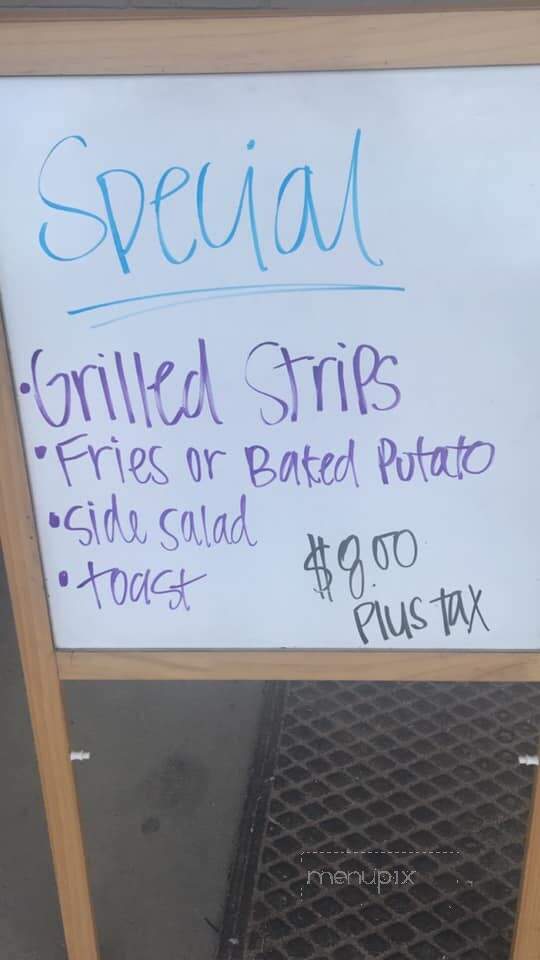 Special
• Grilled Strips
• Fries or Baked Potato
• Side Salad
• toast
$8.00
Plus tax
menupix